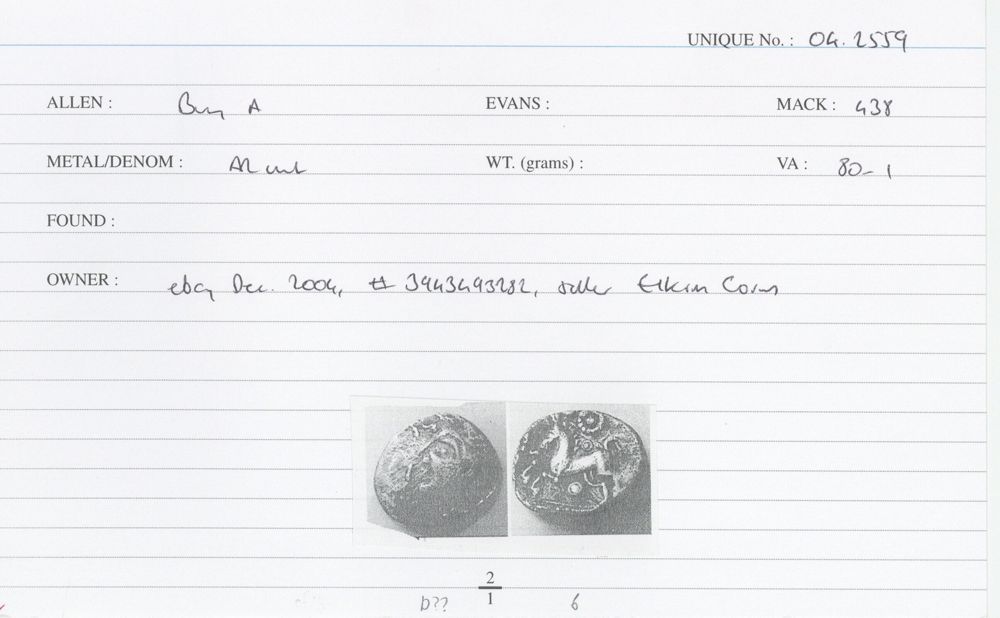 UNIQUE No. : 04. 2559
ALLEN : Bury A EVANS : MACK : 438
METAL/DENOM : AR unit WT. (grams) : VA : 80-1
FOUND :
OWNER : ebay Dec. 2004, # 3943493282, seller Elkin Coins
2
b?? 1 6